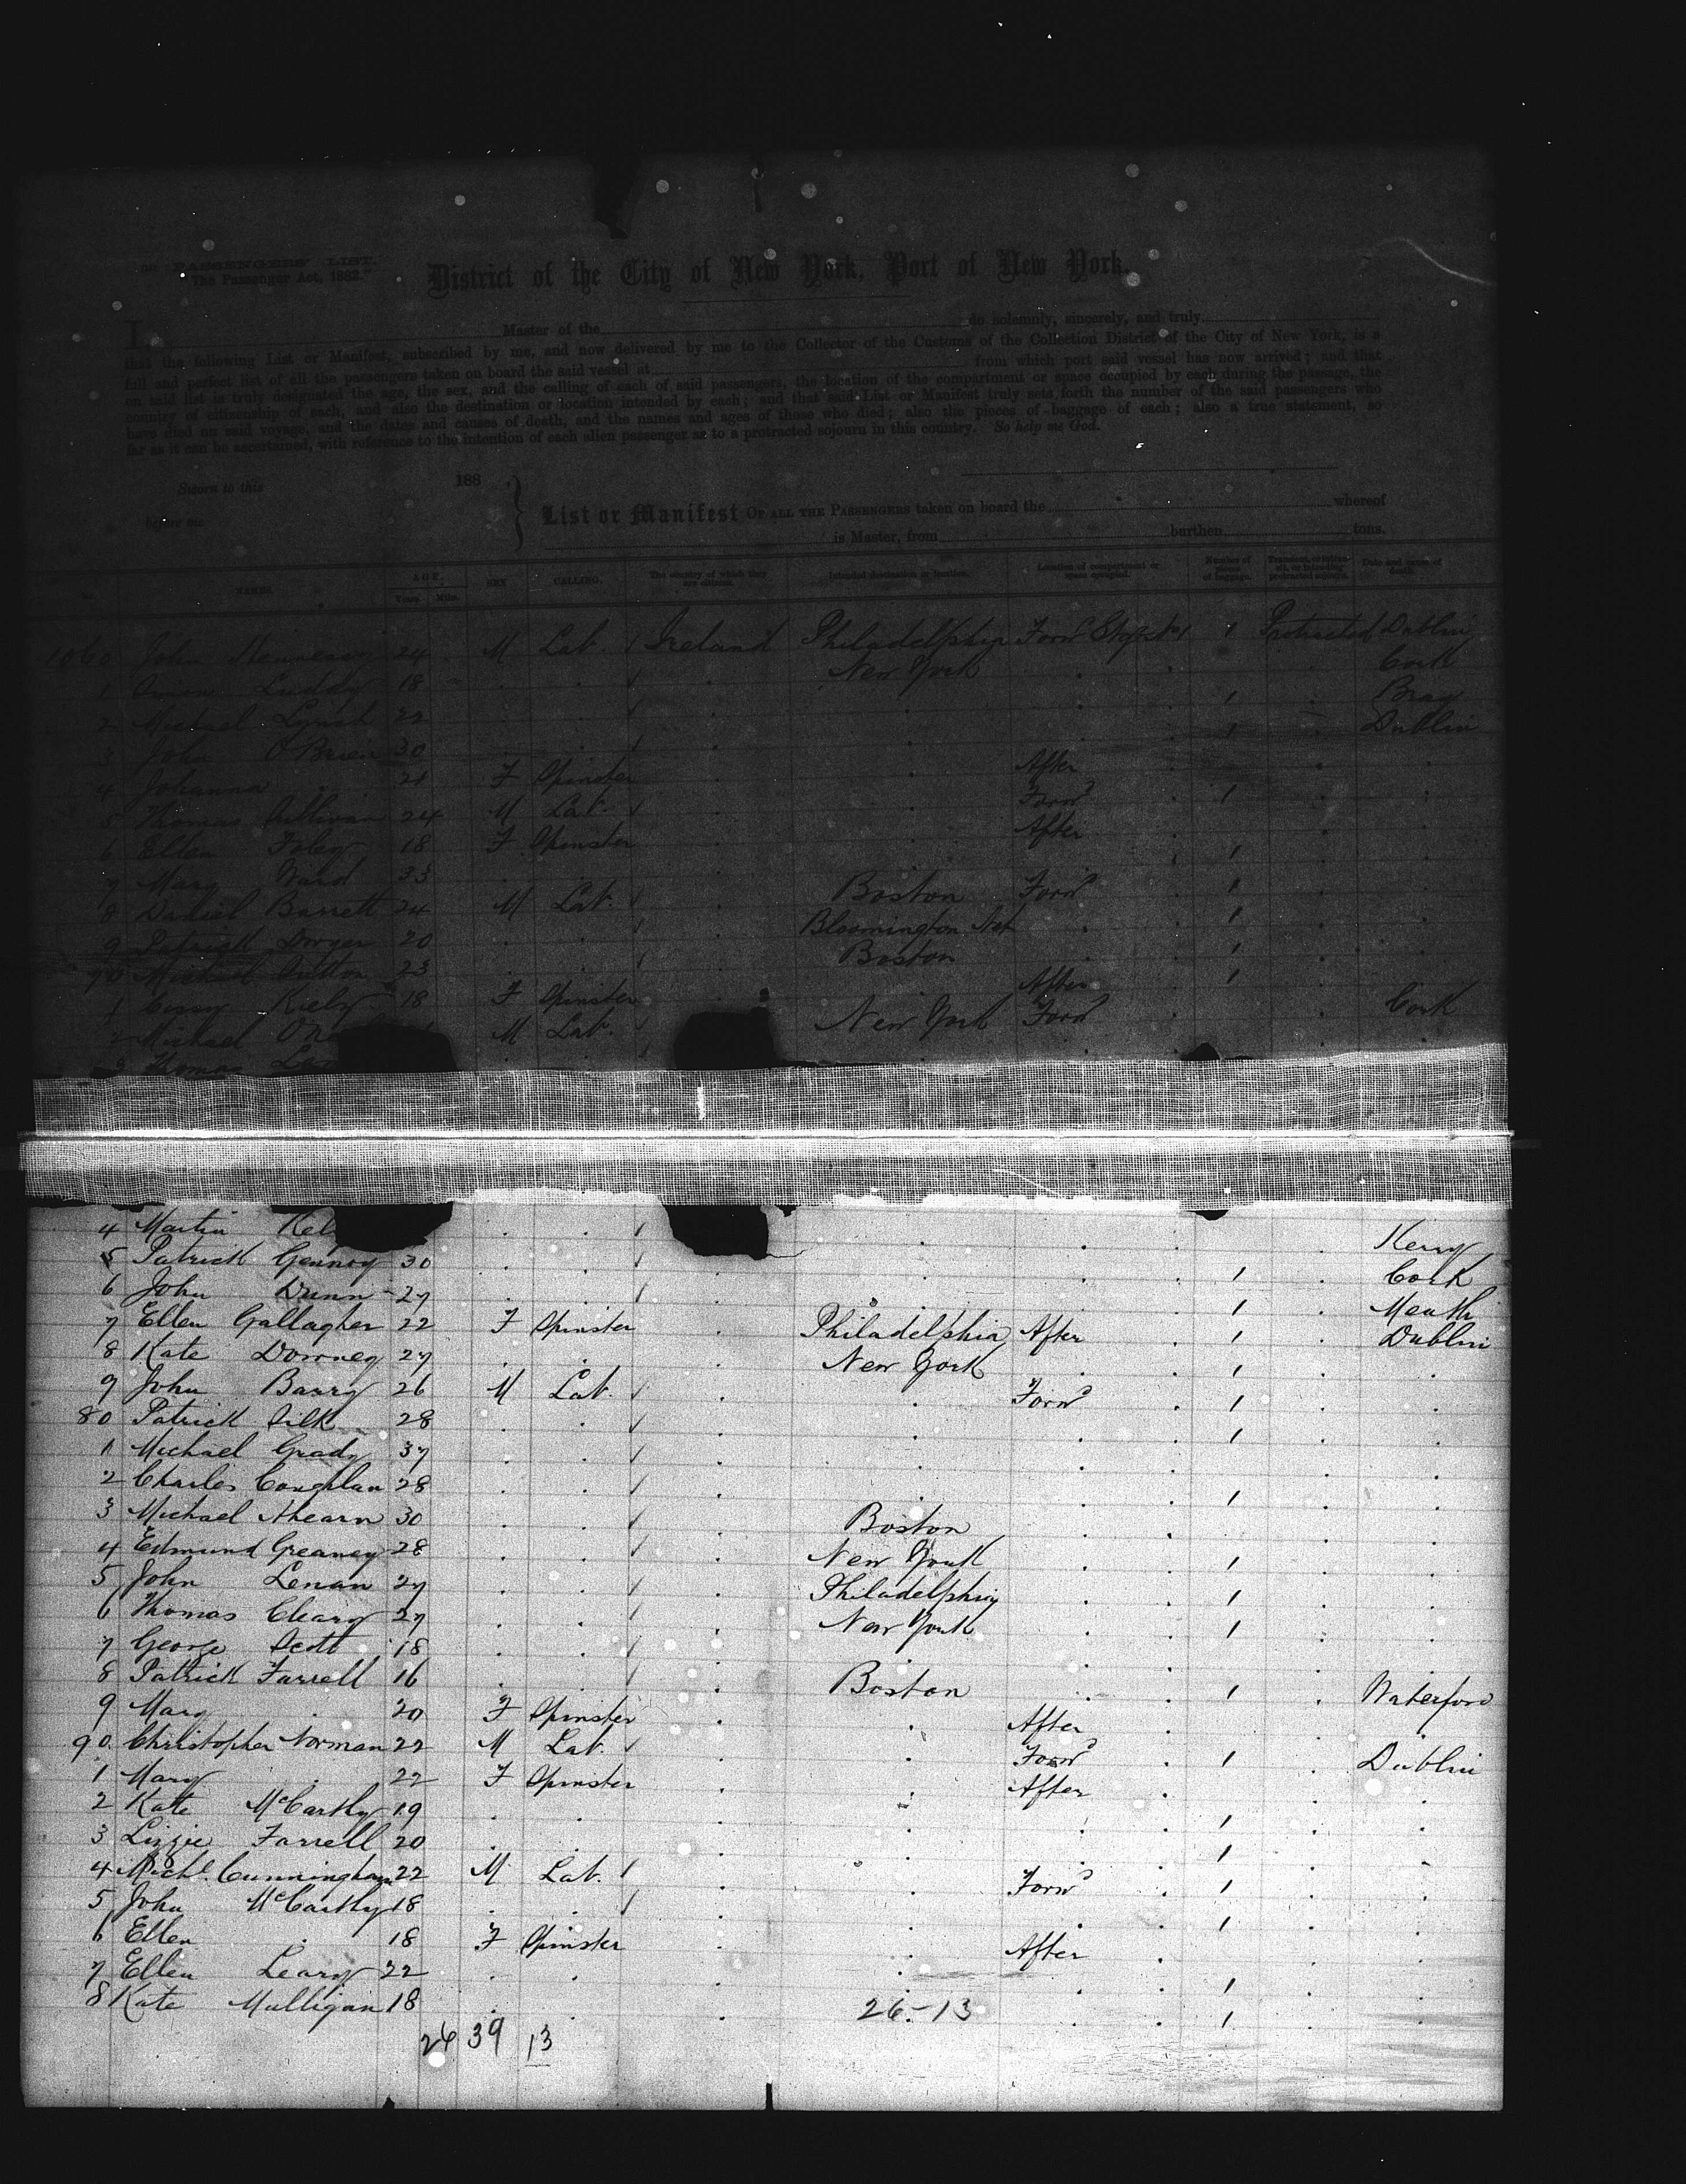 PASSENGERS' LIST.
The Passenger Act, 1882."
District of the City of New York, Port of New York.
I, Master of the do solemnly, sincerely, and truly
that the following List or Manifest, subscribed by me, and now delivered by me to the Collector of the Customs of the Collection District of the City of New York, is a
full and perfect list of all the passengers taken on board the said vessel at from which port said vessel has now arrived; and that
on said list is truly designated the age, the sex, and the calling of each of said passengers, the location of the compartment or space occupied by each during the passage, the
country of citizenship of each, and also the destination or location intended by each; and that said List or Manifest truly sets forth the number of the said passengers who
have died on said voyage, and the dates and causes of death, and the names and ages of those who died; also the pieces of baggage of each; also a true statement, so
far as it can be ascertained, with reference to the intention of each alien passenger as to a protracted sojourn in this country. So help me God.
Sworn to this 188
before me
List or Manifest OF ALL THE PASSENGERS taken on board the whereof
is Master, from burthen tons.
NAMES. AGE. Years. Mths. SEX CALLING. The country of which they are citizens. Intended destination or location. Location of compartment or space occupied. Number of pieces of baggage. Date and cause of death.
1060 John Hennessy 24 M Lab. Ireland Philadelphia Forwd 1 Protracted Dublin
1 Simon Luddy 18 New York Cork
2 Michael Lynch 22 1 Bray
3 John O'Brien 30 1 Dublin
4 Johanna 21 F Spinster After
5 Thomas Sullivan 24 M Lab. Forwd 1
6 Ellen Foley 18 F Spinster After
7 Mary Ward 33 1
8 Daniel Barrett 24 M Lab. Boston Forwd 1
9 Patrick Dwyer 20 Bloomington 1
70 Michael Sutton 23 Boston 1
1 Kiely 18 F Spinster After 1
2 Michael M Lab. New York Forwd Cork
3 Thomas
4 Martin Kel Kerry
5 Patrick Gannoy 30 1 Cork
6 John Dunn 27 1 Meath
7 Ellen Gallagher 22 F Spinster Philadelphia After 1 Dublin
8 Kate Downey 27 New York 1
9 John Barry 26 M Lab. Forwd 1
80 Patrick Silk 28 1
1 Michael Grady 37
2 Charles Coughlan 28 1
3 Michael Ahearn 30 Boston
4 Edmund Greaney 28 New York 1
5 John Lenan 27 Philadelphia 1
6 Thomas Cleary 27 New York 1
7 George Scott 18
8 Patrick Farrell 16 Boston 1 Waterford
9 Mary 20 F Spinster After
90 Christopher Norman 22 M Lab. Forwd 1 Dublin
1 Mary 22 F Spinster After
2 Kate McCarthy 19 1
3 Lizzie Farrell 20 1
4 Michl. Cunningham 22 M Lab. Forwd 1
5 John McCarthy 18 1
6 Ellen 18 F Spinster After
7 Ellen Leary 22 1
8 Kate Mulligan 18 26-13 1
26 39 13